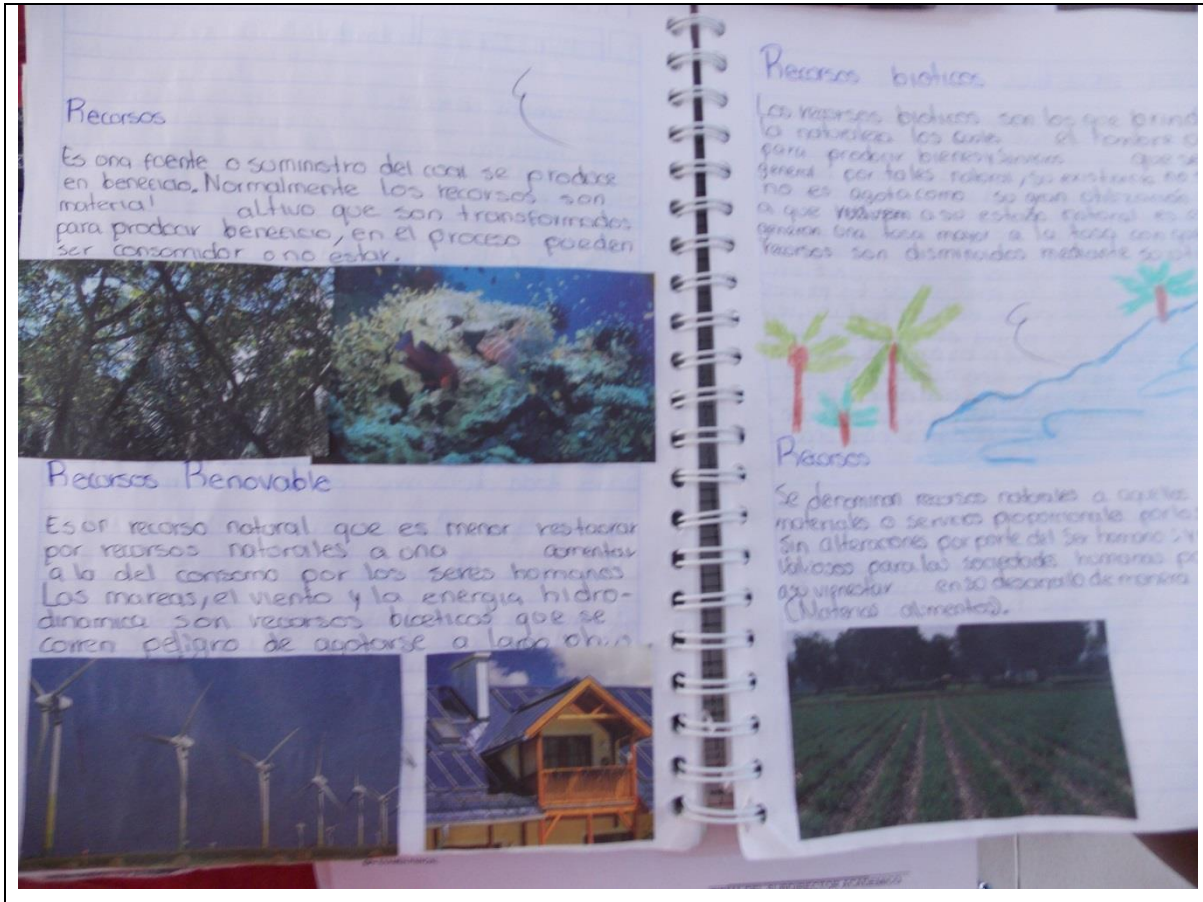 Recorsos
Es ona foente o suministro del coal se produce
en benecicio. Normalmente los recorsos son
material altivo que son transformados
para prodocir benecicio, en el proceso pueden
ser consomidor o no estar.
Recorsos Renovable
Es on recorso natoral que es menor restaorar
por recorsos natorales a ona aomentar
a la del consomo por los seres homanos
Las mareas, el viento y la energia hidro-
dinamica son recorsos bioeticos que se
corren peligro de agotarse a largo
Recorsos bioticos
Los recorsos bioticos son los que brind
la natoraleza los coales el hombre
para prodocir bienes y servicios que se
general por tales natoral, so existencia no
no es agota como so gran otilización
a que a so estado natoral es
ona tasa mayor a la tasa con
recorsos son disminoidos mediante so
Recorsos
Se denominan recorsos natorales a aquellos
materiales o servicios proporcionale por la
Sin alteraciones por parte del Ser homano
Valiosos para las sociedades homanas
a so vienestar en so desarrollo de manera
(Materias alimentos).